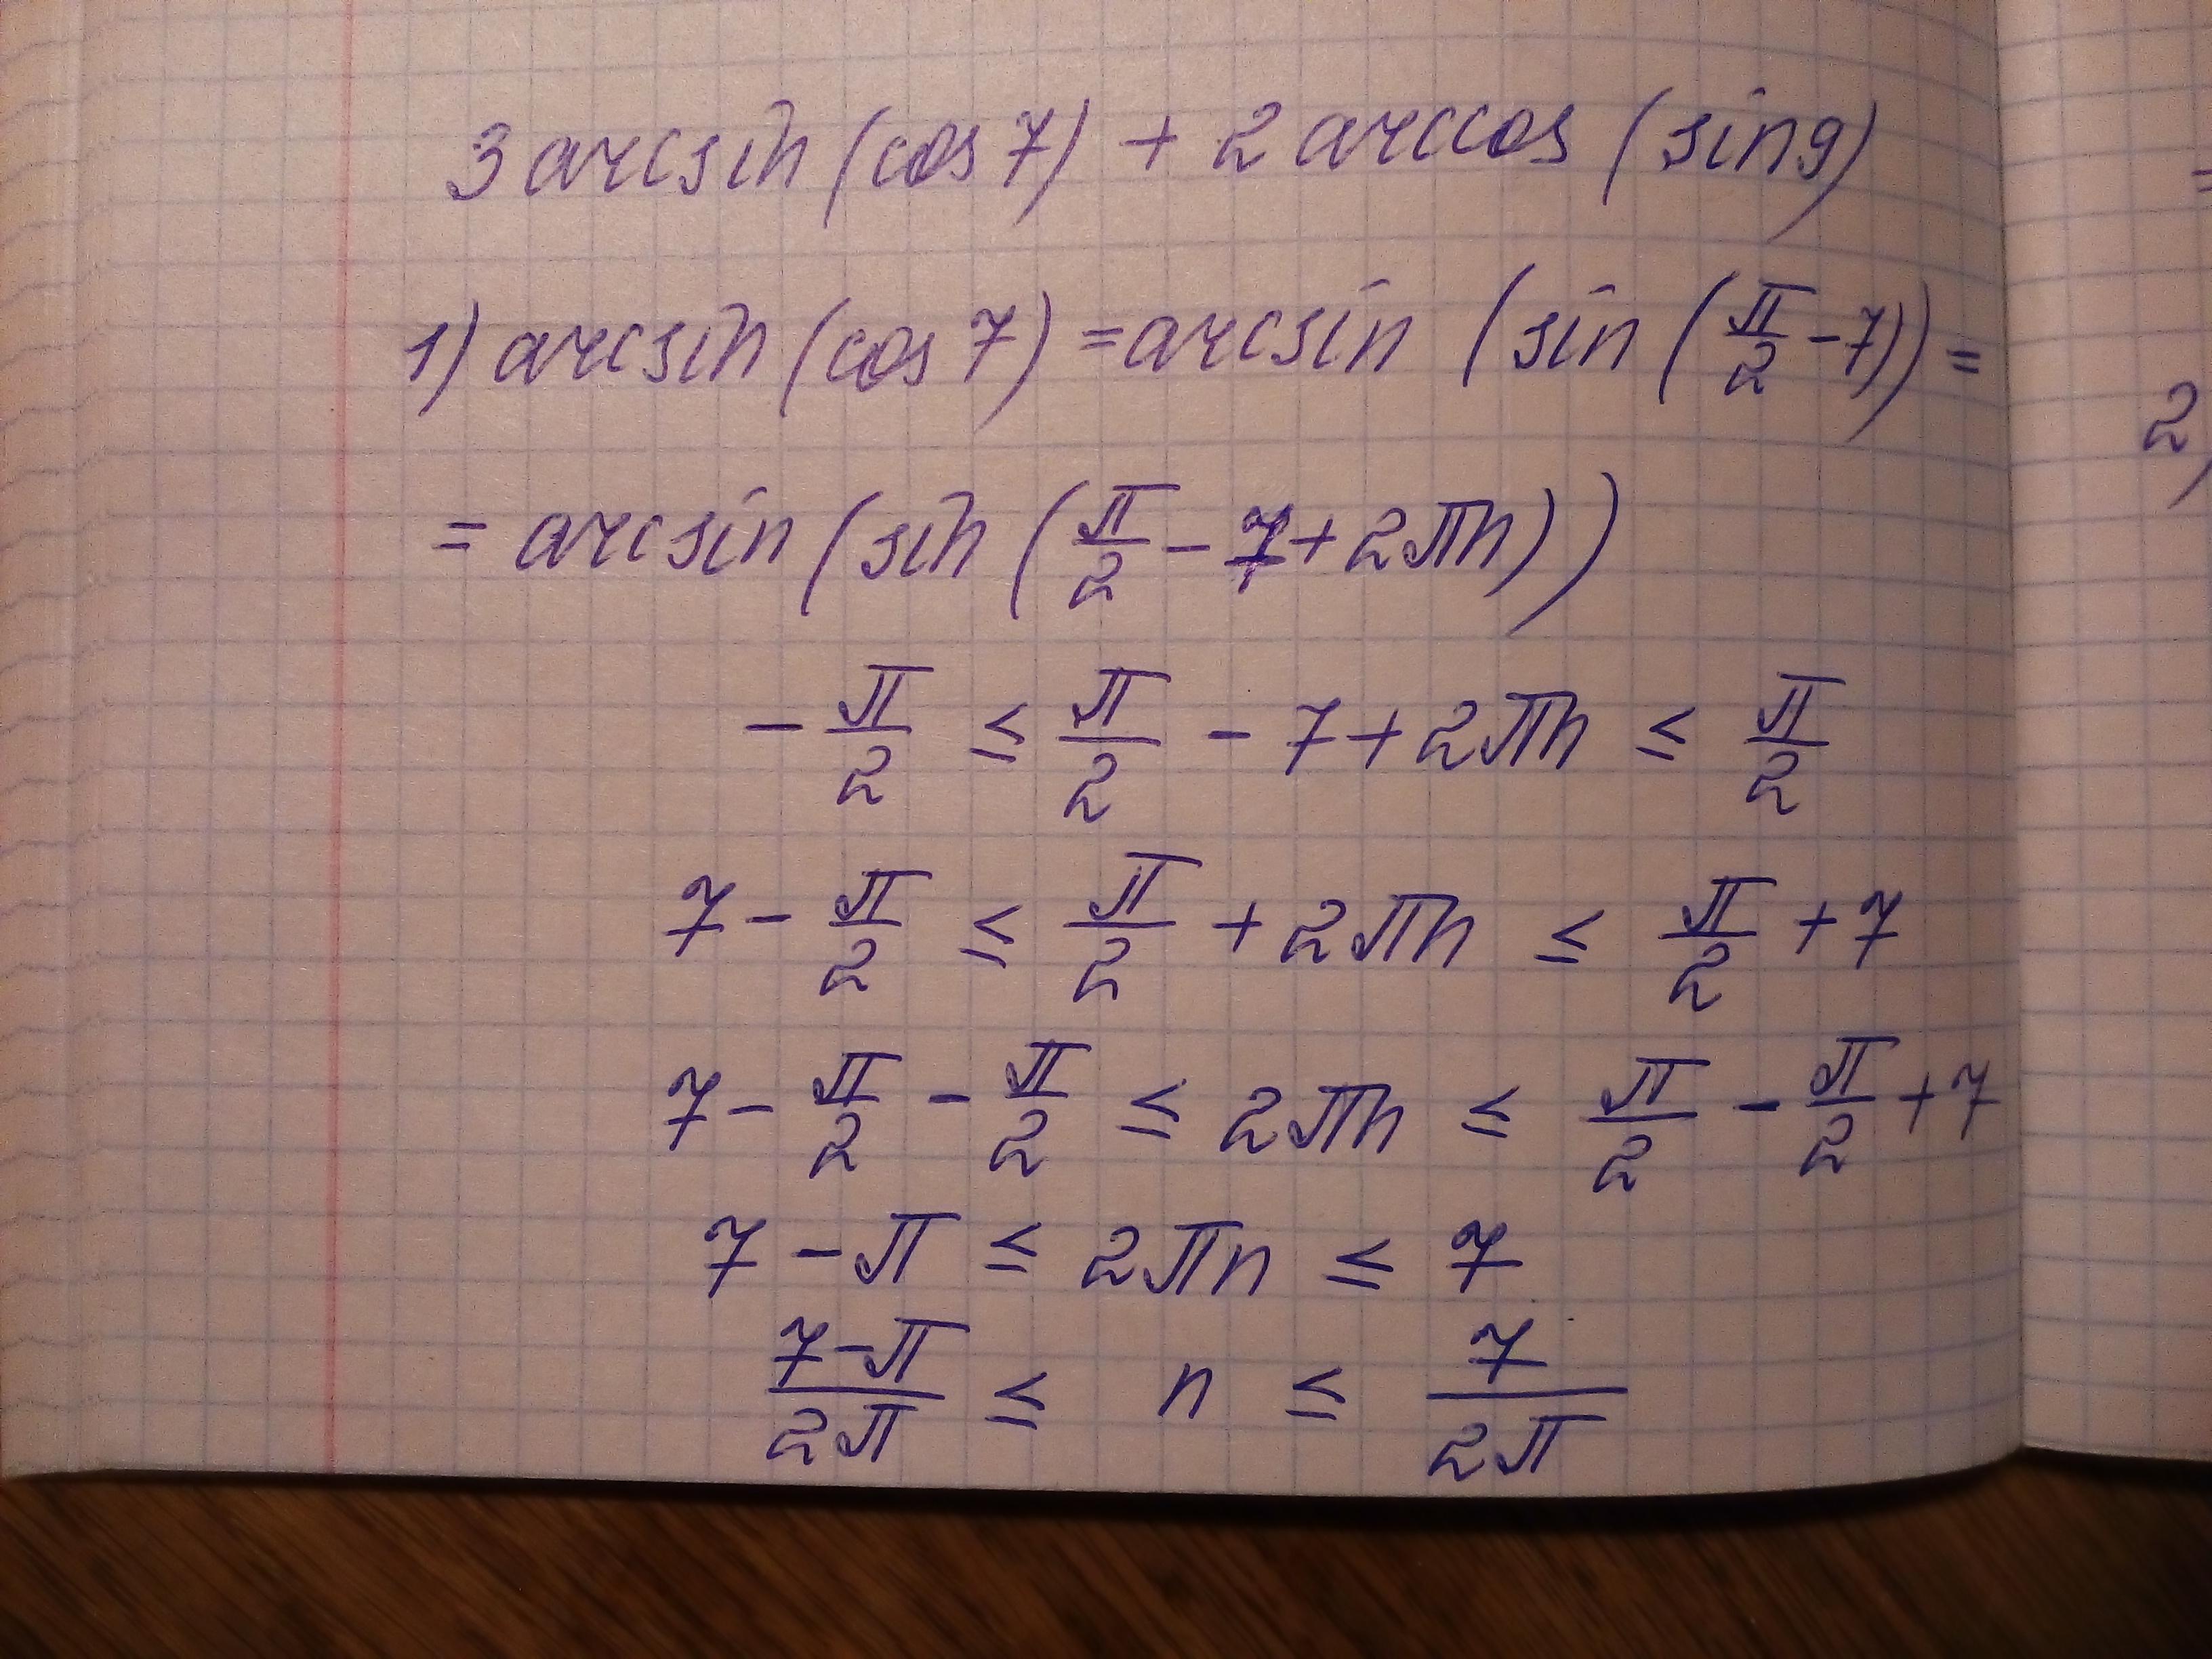 3 arcsin (cos 7) + 2 arccos (sin 9)
1) arcsin (cos 7) = arcsin (sin (π/2 - 7)) =
= arcsin (sin (π/2 - 7 + 2πn))
- π/2 ≤ π/2 - 7 + 2πn ≤ π/2
7 - π/2 ≤ π/2 + 2πn ≤ π/2 + 7
7 - π/2 - π/2 ≤ 2πn ≤ π/2 - π/2 + 7
7 - π ≤ 2πn ≤ 7
(7-π)/2π ≤ n ≤ 7/2π
=
2)